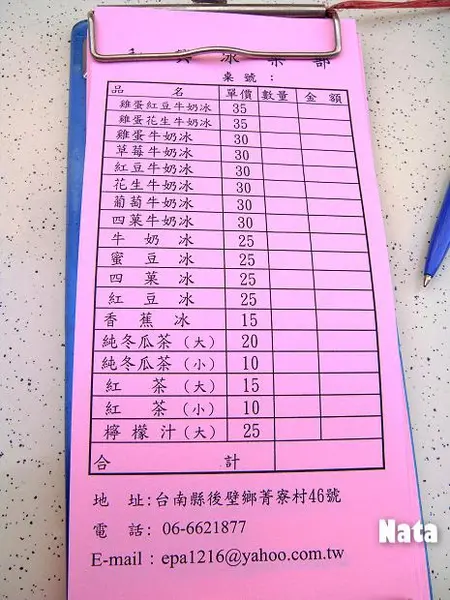 冰菓部
桌號:
品名 單價 數量 金額
雞蛋紅豆牛奶冰 35
雞蛋花生牛奶冰 35
雞蛋牛奶冰 30
草莓牛奶冰 30
紅豆牛奶冰 30
花生牛奶冰 30
葡萄牛奶冰 30
四菓牛奶冰 30
牛奶冰 25
蜜豆冰 25
四菓冰 25
紅豆冰 25
香蕉冰 15
純冬瓜茶(大) 20
純冬瓜茶(小) 10
紅茶(大) 15
紅茶(小) 10
檸檬汁(大) 25
合計
地址:台南縣後壁鄉菁寮村46號
電話: 06-6621877
E-mail : epa1216@yahoo.com.tw
Nata